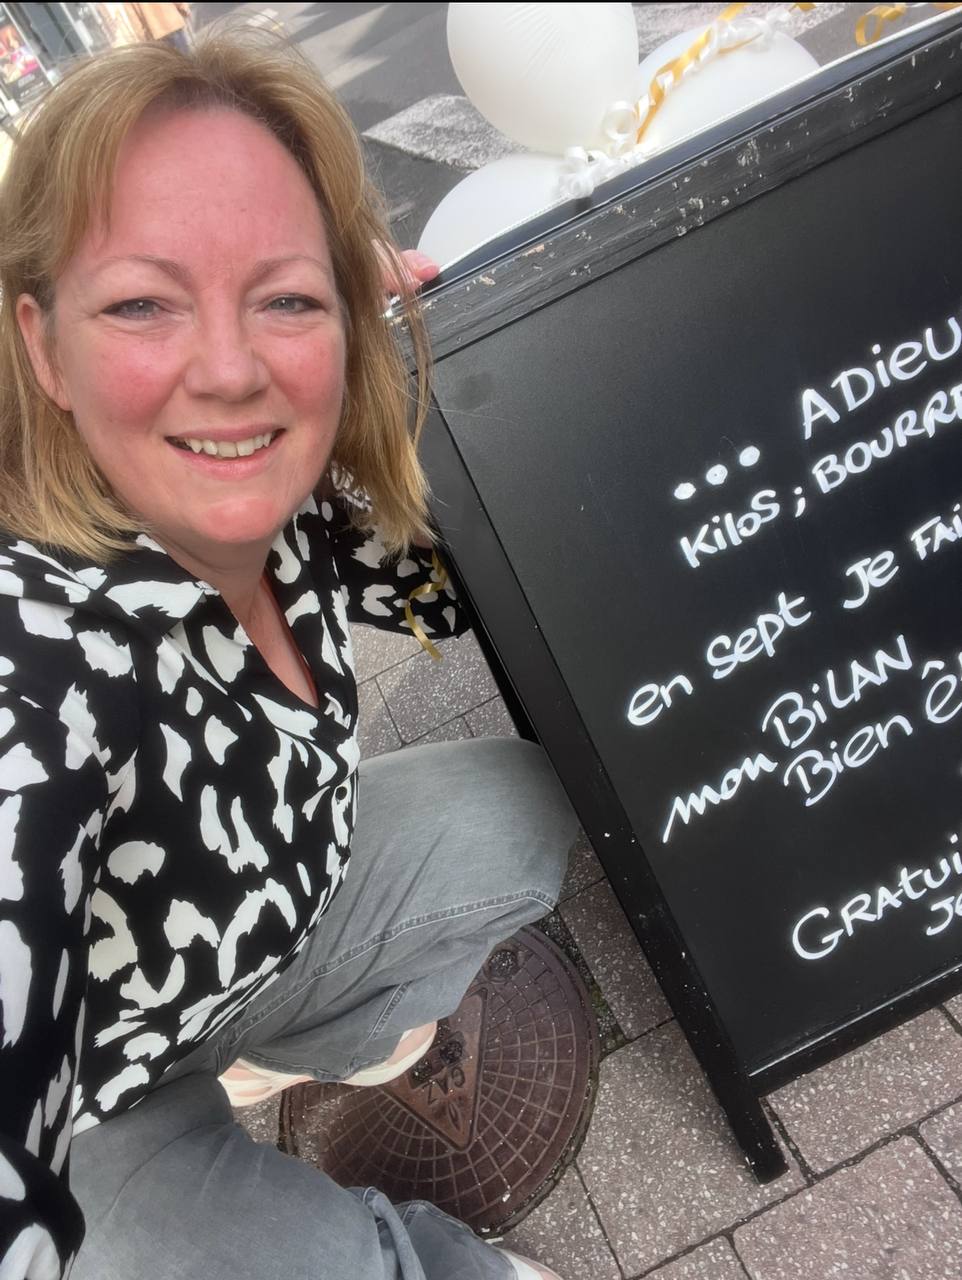 ... ADieU
KilOS ; BOURRE
en Sept Je FAi
mon BiLAN
Bien ê
GRAtui
Je
GAZ